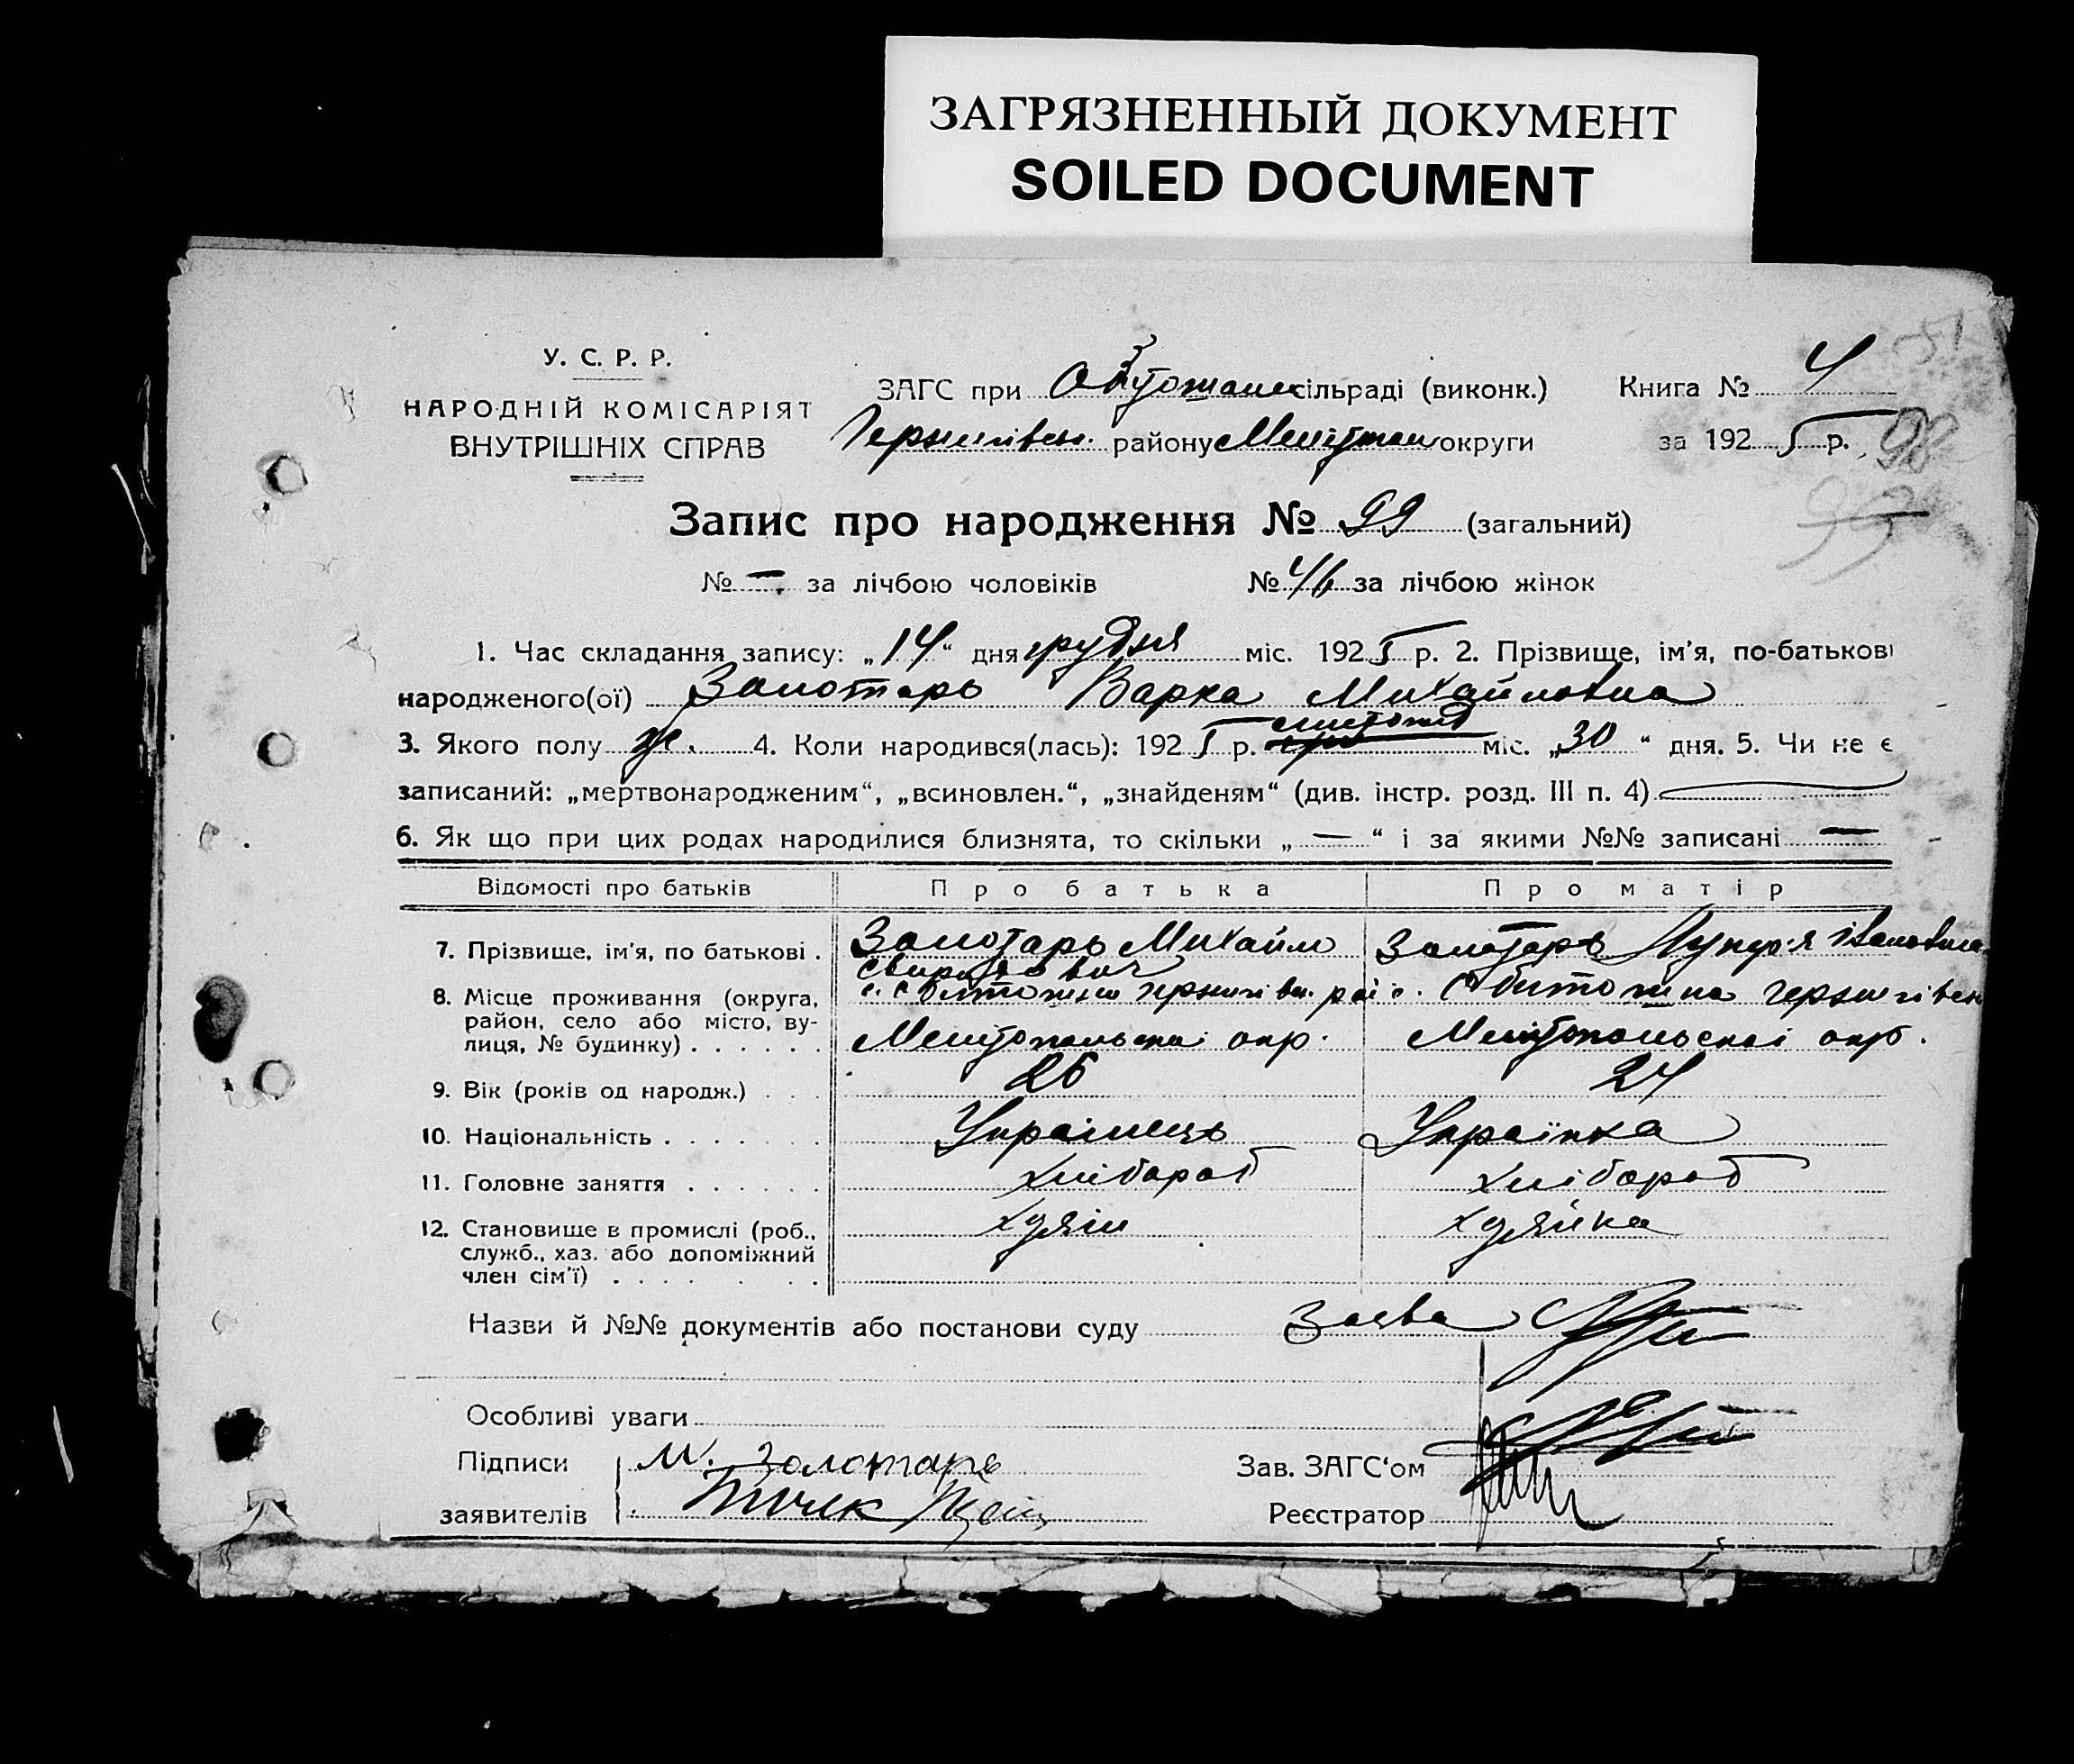 ЗАГРЯЗНЕННЫЙ ДОКУМЕНТ
SOILED DOCUMENT
У. С. Р. Р.
НАРОДНІЙ КОМІСАРІЯТ
ВНУТРІШНІХ СПРАВ
ЗАГС при сільраді (виконк.)
Книга № 4
району округи
за 1925 р. 98
Запис про народження № 99 (загальний)
99
№ — за лічбою чоловіків № 46 за лічбою жінок
1. Час складання запису: „14“ дня грудня міс. 1925 р. 2. Прізвище, ім'я, по-батькові
народженого(ої) Золотарь Варка Михайловна
3. Якого полу ж. 4. Коли народився(лась): 1925 р. листопад міс. „30“ дня. 5. Чи не є
записаний: „мертвонародженим“, „всиновлен.“, „знайденям“ (див. інстр. розд. III п. 4)
6. Як що при цих родах народилися близнята, то скільки „—“ і за якими №№ записані —
Відомості про батьків Про батька Про матір
7. Прізвище, ім'я, по батькові . Золотарь Михайло Золотарь івановна
8. Місце проживання (округа, район, село або місто, вулиця, № будинку) . . . . . . Мелітопольськоі окр. Мелітопольскоі окр.
9. Вік (років од народж.) . . . 26 24
10. Національність . . . . . . . Українець Українка
11. Головне заняття . . . . . . хлібороб хлібороб
12. Становище в промислі (роб., служб., хаз. або допоміжний член сім'ї) . . . . . . . хазяін хазяйка
Назви й №№ документів або постанови суду Заява
Особливі уваги
Підписи М. Золотарь Зав. ЗАГС'ом
заявителів Реєстратор